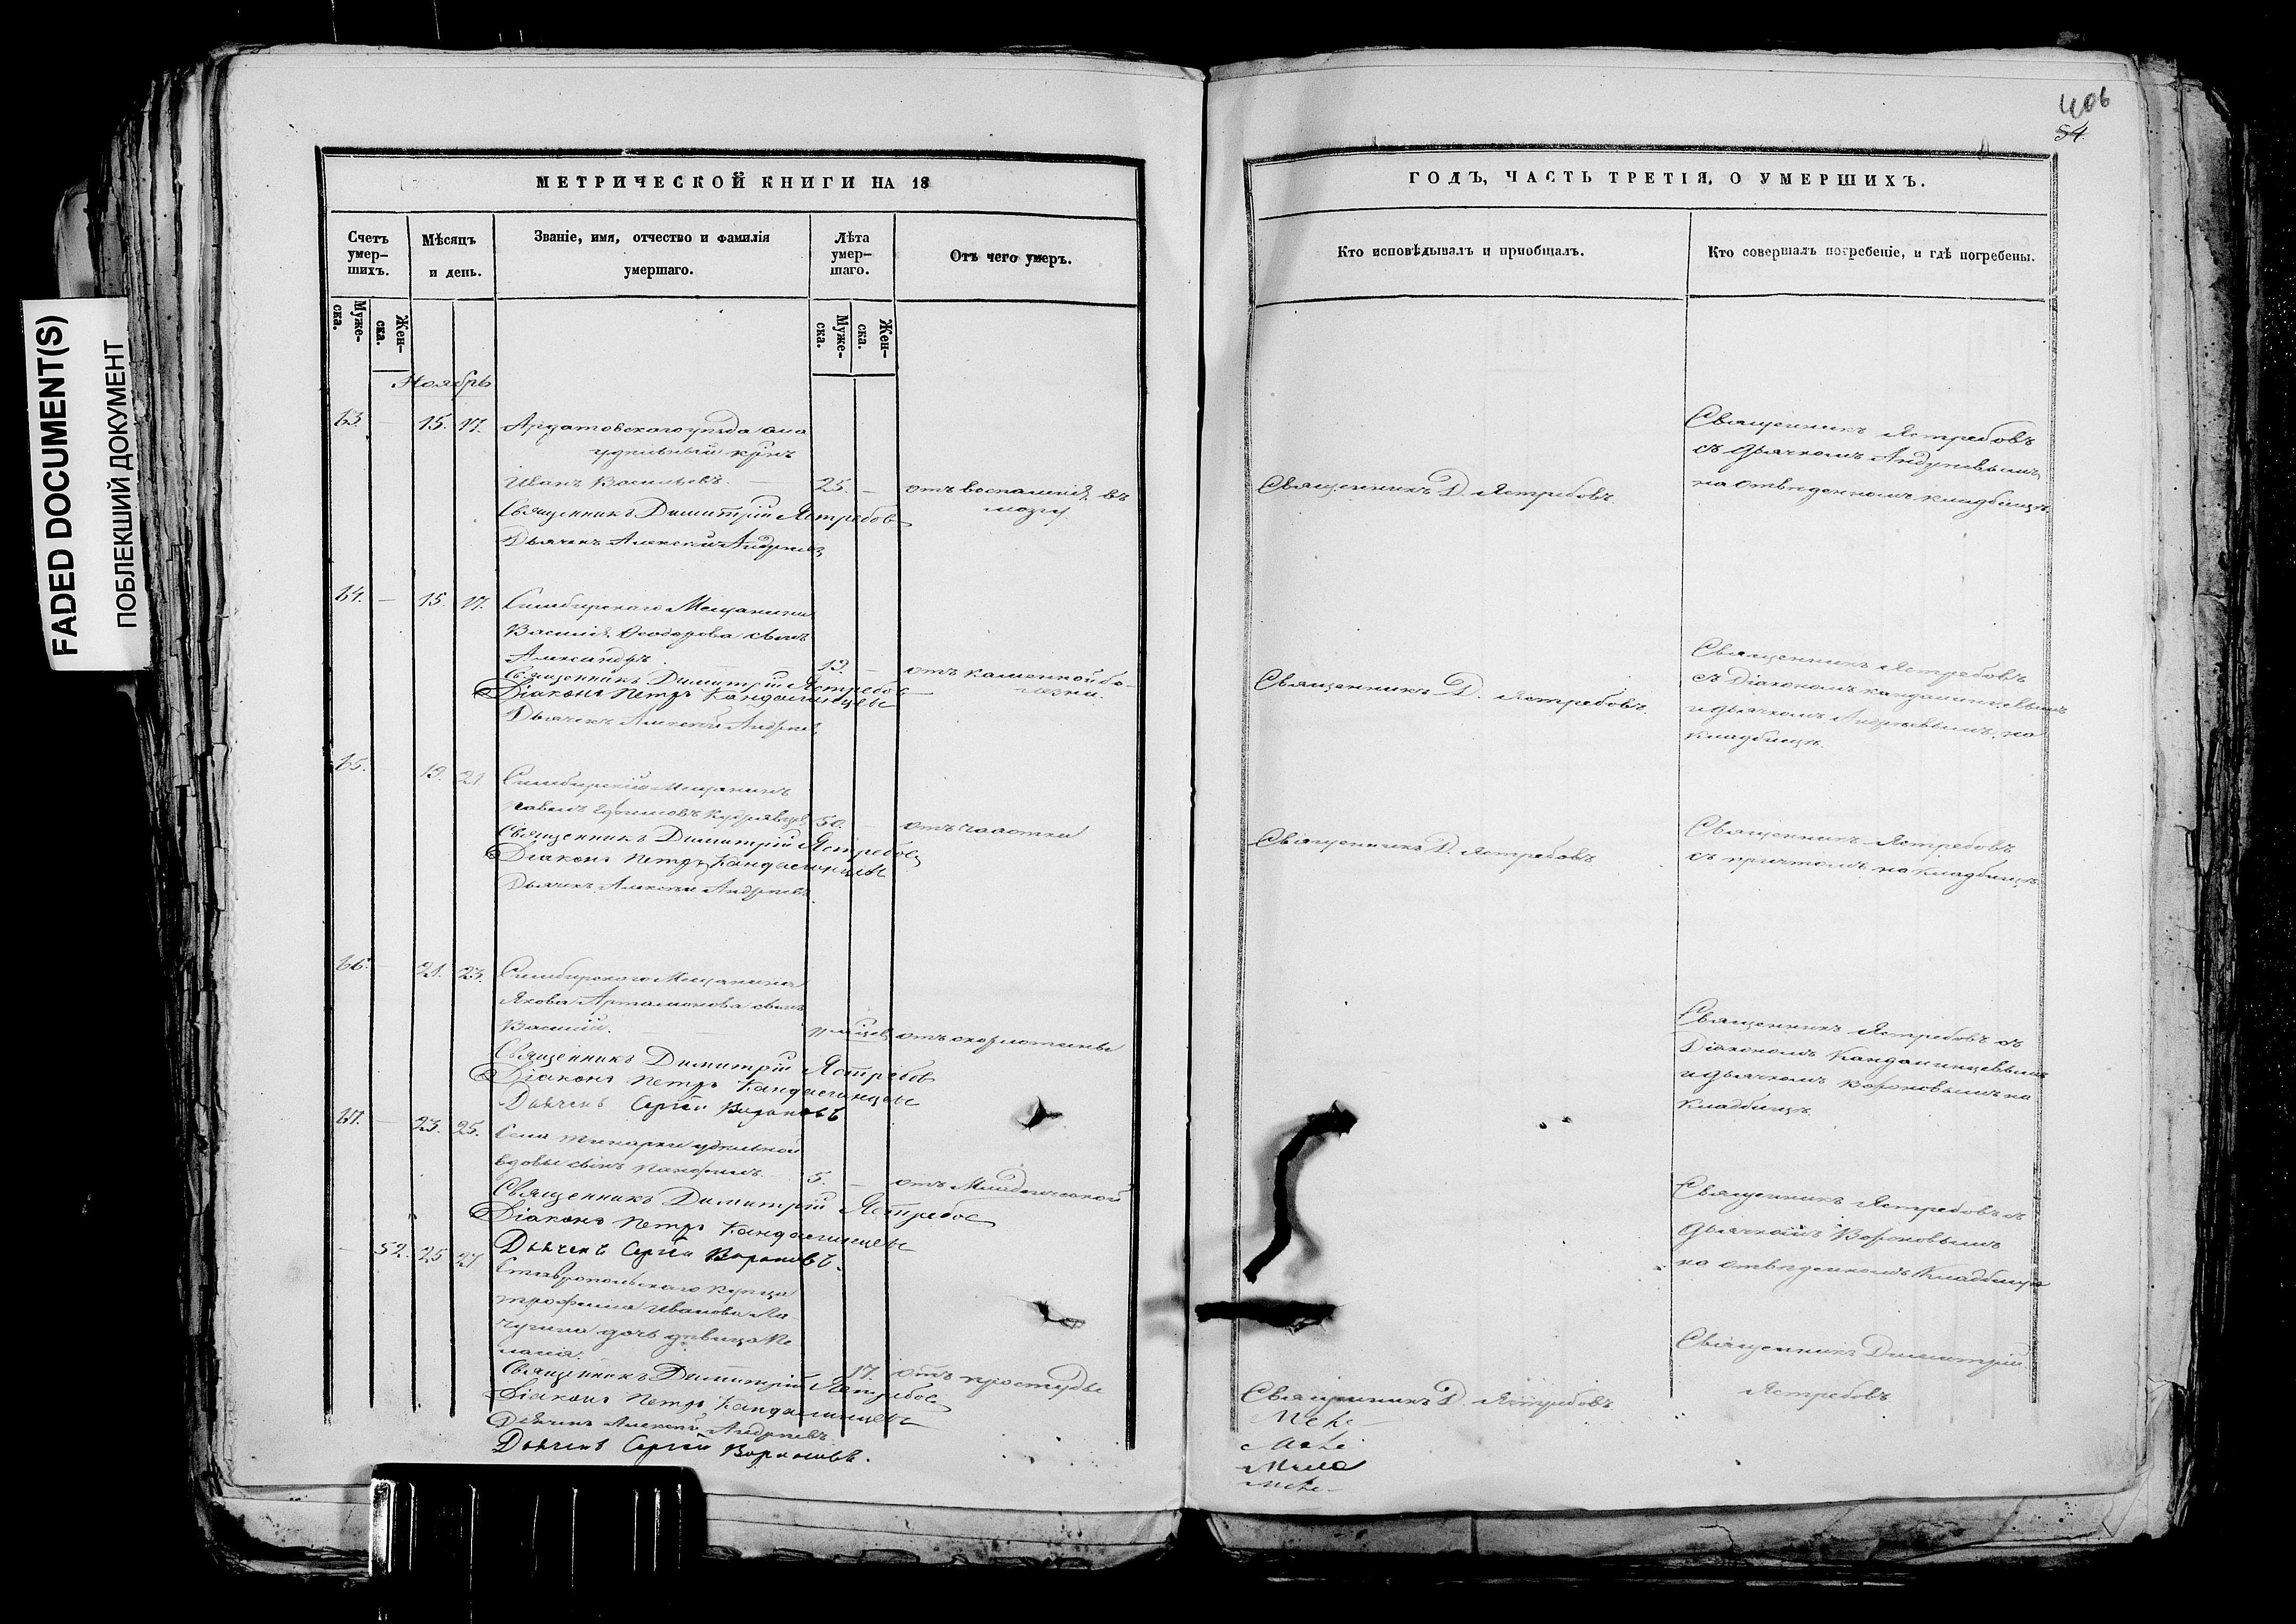 FADED DOCUMENT(S)
ПОБЛЕКШИЙ ДОКУМЕНТ
МЕТРИЧЕСКОЙ КНИГИ НА 18
Счетъ умер-
шихъ.
Мѣсяцъ
и день.
Званіе, имя, отчество и фамилія
умершаго.
Лѣта
умер-
шаго.
Отъ чего умеръ.
Муже-
ска.
Жен-
ска.
Муже-
ска.
Жен-
ска.
Ноябрь
63. — 15. 17. Ардатовскаго уѣзда
удѣльный крнъ
Иванъ Васильевъ. — 25. — отъ воспаленія въ
мозгу.
Священникъ Димитрій Ястребов
Дьячекъ Алексей Андреев
64. — 15. 17. Симбирскаго Мещанина
Василія Ѳеодорова сынъ
Александръ. 12. — отъ каменной бо-
лезни.
Священникъ Димитрій Ястребов
Діаконъ Петръ Кандалинцевъ
Дьячекъ Алексей Андреев
65. 19. 21. Симбирскій Мещанинъ
Павелъ Ефимовъ Кудрявцев 50. — отъ чахотки
Священникъ Димитрій Ястребов
Діаконъ Петръ Кандалинцевъ
Дьячекъ Алексей Андреевъ.
66. — 21. 23. Симбирскаго Мещанина
Якова Артамонова сынъ
Василій. — отъ скорлотины
Священникъ Димитрій Ястребов
Діаконъ Петръ Кандалинцевъ
Дьячекъ Сергей Вороновъ
67. — 23. 25. Села удѣльной
вдовы сынъ Панфилъ. 5. — отъ Младенческой
Священникъ Димитрій Ястребов
Діаконъ Петръ Кандалинцевъ
Дьячекъ Сергей Вороновъ.
— 52. 25 27 Ставропольскаго купца
Трофима Иванова Ла
чугина дочь дѣвица Пе
лагія.
17. отъ простуды
Священникъ Димитрій Ястребов
Діаконъ Петръ Кандалинцевъ
Дьячекъ Алексей Андреевъ
Дьячекъ Сергей Вороновъ.
406
54.
ГОДЪ, ЧАСТЬ ТРЕТІЯ, О УМЕРШИХЪ.
Кто исповѣдывалъ и приобщалъ.
Кто совершалъ погребеніе, и гдѣ погребены.
Священникъ Д. Ястребовъ.
Священникъ Ястребовъ
съ дьячкомъ Андреевымъ
на отведенномъ кладбищѣ.
Священникъ Д. Ястребовъ.
Священникъ Ястребовъ
съ Діакономъ Кандалинцевымъ
и дьячкомъ Андреевымъ, на
кладбищѣ.
Священникъ Д. Ястребовъ
Священникъ Ястребовъ
съ причтомъ на кладбищѣ
Священникъ Ястребовъ съ
Діакономъ Кандалинцевымъ
и дьячкомъ Вороновымъ на
кладбищѣ.
Священникъ Ястребовъ съ
дьячкомъ Вороновымъ
на отведенномъ кладбищѣ
Священникъ Д. Ястребовъ
Священникъ Димитрій
Ястребовъ